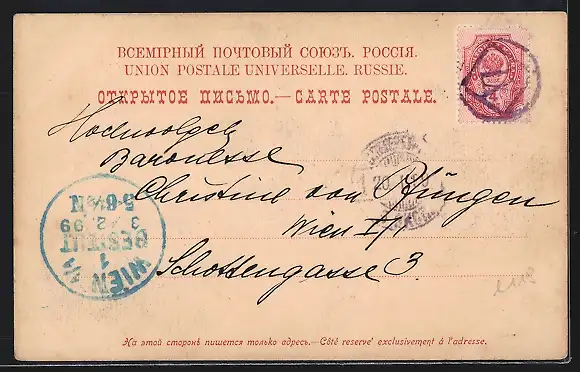 ВСЕМІРНЫЙ ПОЧТОВЫЙ СОЮЗЪ. РОССІЯ.
UNION POSTALE UNIVERSELLE. RUSSIE.
ОТКРЫТОЕ ПИСЬМО.—CARTE POSTALE.
Hochwolgeb
Baronesse
Christine von
Wien I/1
Schottengasse 3.
WIEN 1/1
BESTELLT
1
3 12 99
5-6½N
На этой сторонѣ пишется только адресъ.—Côté reservé exclusivement à l'adresse.